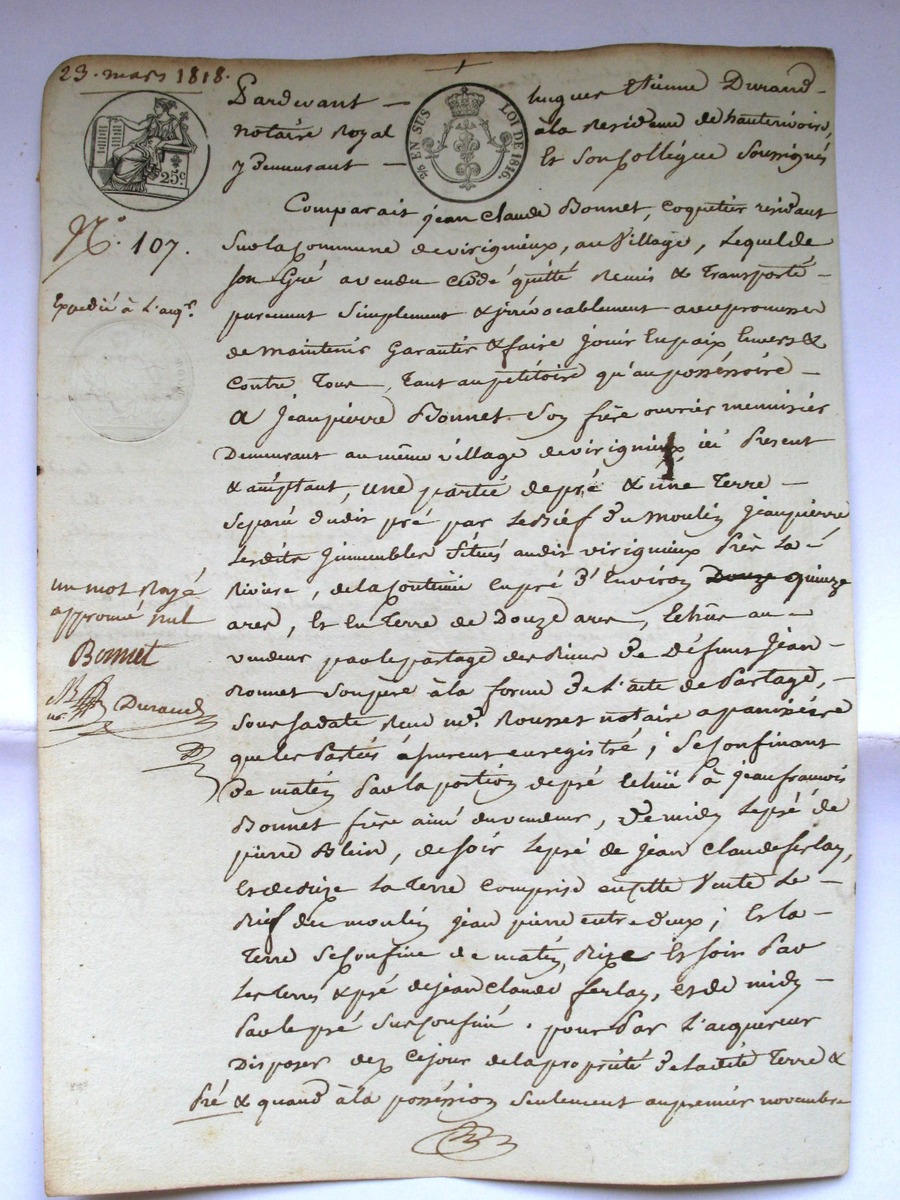 23. mars 1818.
Pardevant — hugues Etienne Durand
notaire Royal à la Residence de hauterivoire,
y Demeurant — Et son Collégue soussignés
25c
2/5 EN SUS LOI DE 1816.
N.o 107.
Expedié à l'acqr.
Comparait jean Claude Bonnet, coquetier residant
sur la Commune de virignieux, au Village, Lequel de
son Gré a vendu cédé quitté Remis & Transporté —
purement simplement & irrévocablement avec promesse
de maintenir Garantir & faire jouir En paix Envers &
Contre Tous, Tant au petitoire qu'au posséssoire —
A Jean pierre Bonnet son frère ouvrier menuisier
Demeurant au même village de virignieux ici Present
& acceptant, une partie de pré & une Terre —
separée dudit pré par Le Bief du moulin Jean pierre
Lesdits immeubles situés audit virignieux Près La —
Riviere, de la Contenue En pré D'Environ Douze quinze
ares, Et En Terre de Douze ares, Echûs au —
vendeur par le partage des Biens De Défunt Jean
Bonnet son père à la forme De L'acte de Partage, —
sous sa date Reçu me. Rousset notaire a panissière
que les Parties assurent enregistré; se Confinant
De matin Par la portion de pré Echüe à jean francois
Bonnet frère ainé du vendeur, De midy Le pré de
pierre Blein, de soir Le pré de jean Claude ferlay,
Et de bize La Terre Comprise en cette vente Le —
Bief du moulin jean pierre entre deux; Et La —
Terre se Confine de matin, Bize Et soir Par
Les Terres & pré de jean Claude ferlay, Et de midy —
Par le pré sus Confiné. pour Par L'acquereur
Disposer dez Cejour de la propriété De ladite Terre &
Pré & quand à la posséssion seulement au premier novembre
un mot Rayé
approuvé nul
Bonnet
Durand